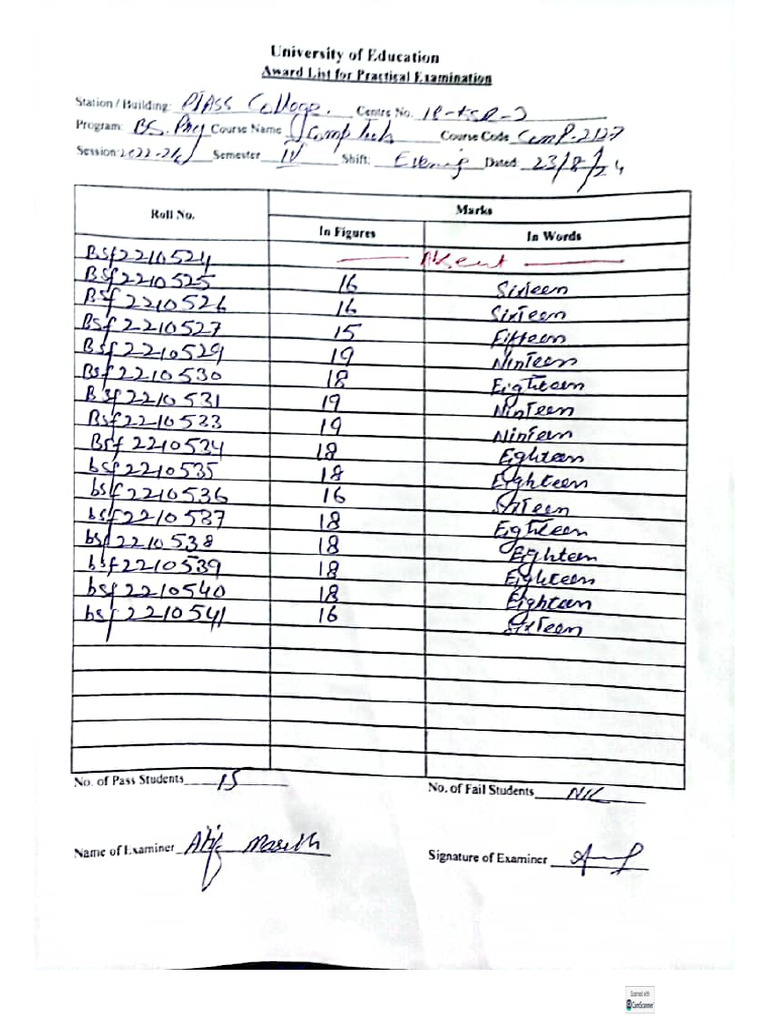 University of Education
Award List for Practical Examination
Station / Building: PIASS College. Centre No.
Program: BS. Phy Course Name Comp Course Code Comp-2127
Session: 2022-26 Semester IV Shift: Evening Dated: 23/8/24
Roll No. Marks
In Figures In Words
Bsf2210524 Absent
Bsf2210525 16 Sixteen
Bsf2210526 16 SixTeen
Bsf2210527 15 Fifteen
Bsf2210529 19 NinTeen
Bsf2210530 18 Eighteen
Bsf2210531 19 NinTeen
Bsf2210533 19 NinTeen
Bsf2210534 18 Eighteen
bsf2210535 18 Eighteen
bsf2210536 16 SixTeen
bsf2210537 18 Eighteen
bsf2210538 18 Eighteen
bsf2210539 18 Eighteen
bsf2210540 18 Eighteen
bsf2210541 16 SixTeen
No. of Pass Students 15 No. of Fail Students NIL
Name of Examiner Atif Signature of Examiner
Scanned with
CamScanner